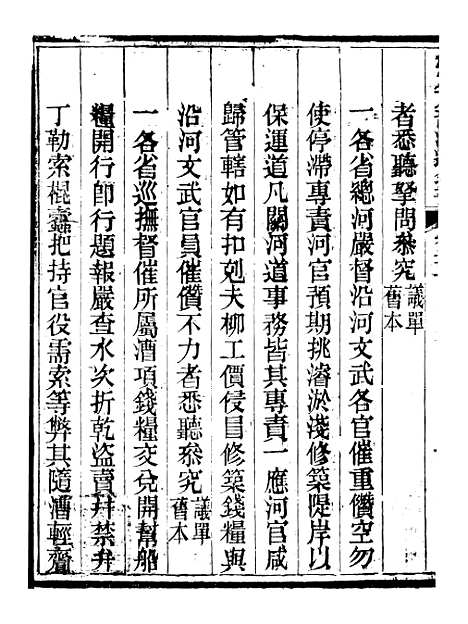 者悉聽拏問叅究議單舊本
一各省總河嚴督沿河文武各官催重儹空勿
使停滯專責河官預期挑濬淤淺修築隄岸以
保運道凡關河道事務皆其專責一應河官咸
歸管轄如有扣剋夫柳工價侵冒修築錢糧與
沿河文武官員催儹不力者悉聽叅究議單舊本
一各省巡撫督催所屬漕項錢糧交兌開幫船
糧開行卽行題報嚴查水次折乾盜賣幷禁弁
丁勒索棍蠹把持官役需索等弊其隨漕輕齎